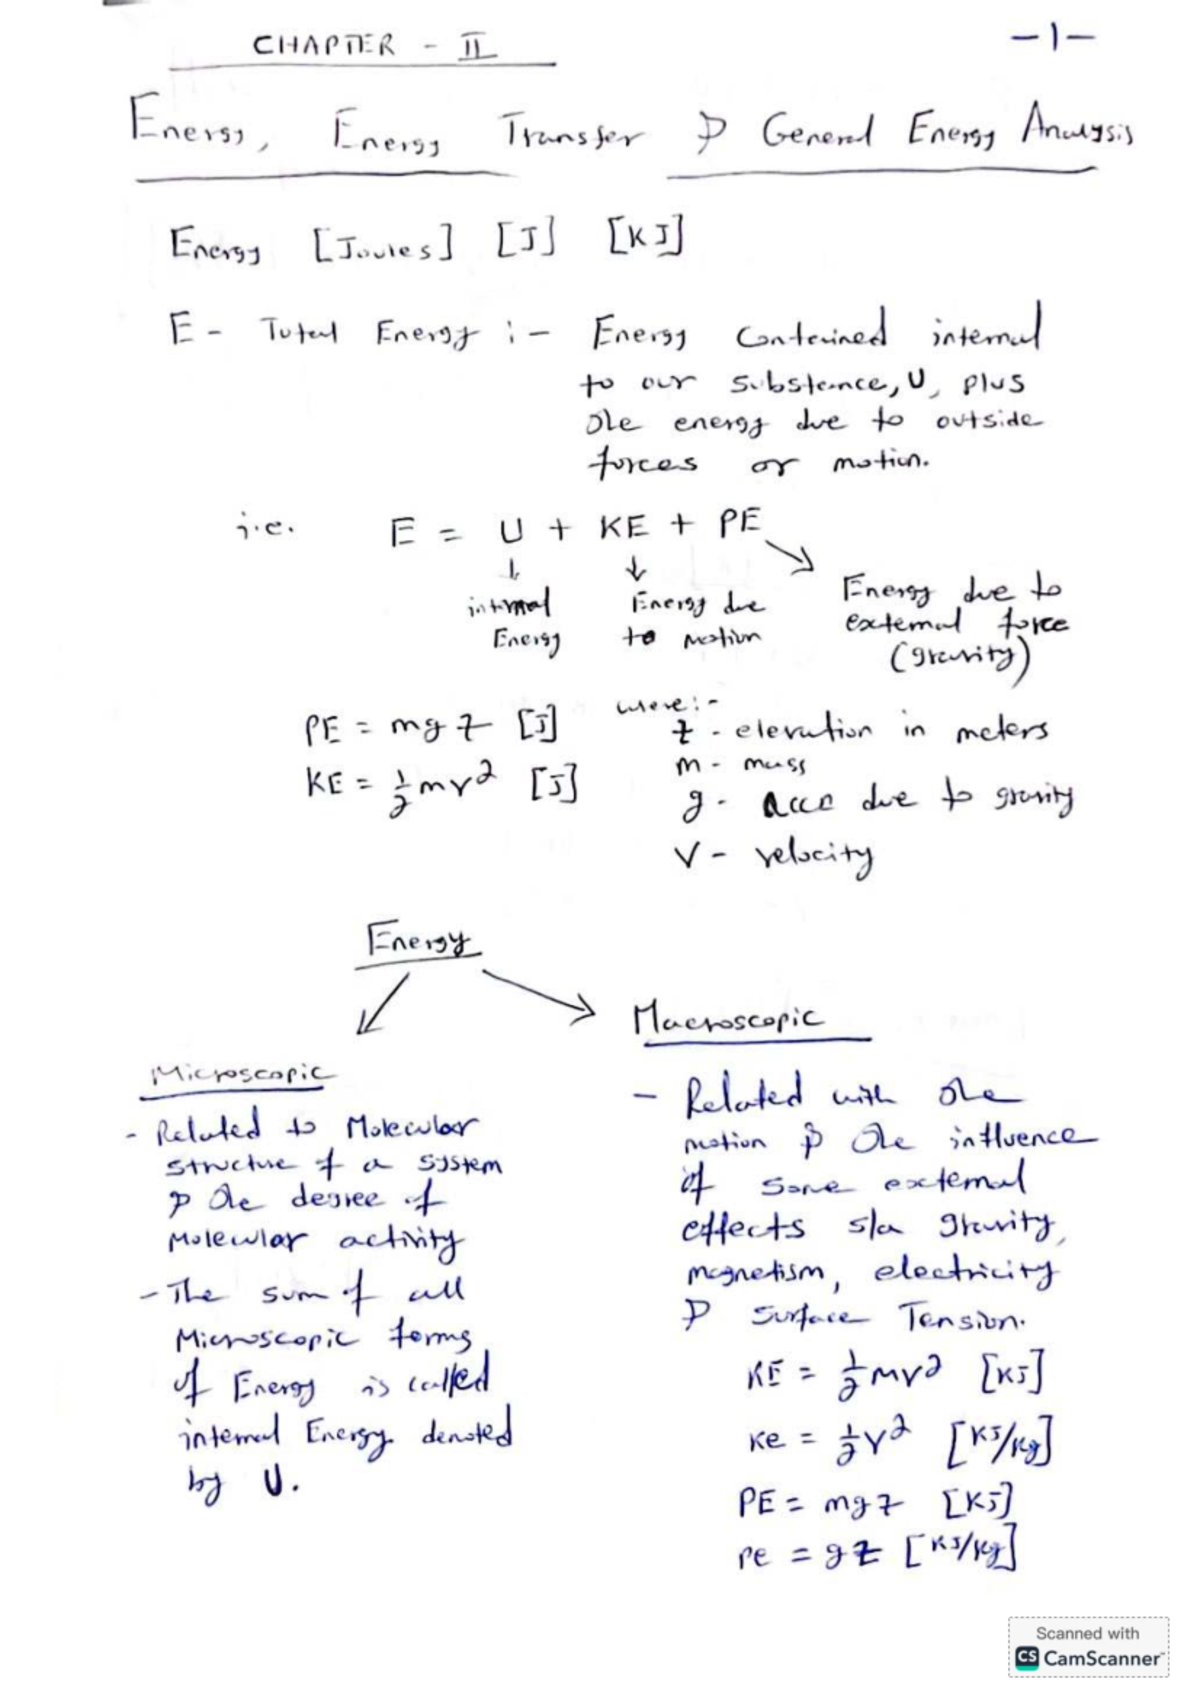 CHAPTER - II
-1-
Energy, Energy Transfer & General Energy Analysis
Energy [Joules] [J] [KJ]
E - Total Energy :- Energy Contained internal
to our substance, U, plus
the energy due to outside
forces or motion.
i.e. E = U + KE + PE
↓ internal Energy
↓ Energy due to motion
↘ Energy due to external force (gravity)
PE = mgz [J]
KE = ½mv² [J]
were:-
z - elevation in meters
m - mass
g - acce due to gravity
V - velocity
Energy
Microscopic
- Related to Molecular
structure of a system
& the degree of
Molecular activity
- The sum of all
Microscopic forms
of Energy is called
internal Energy denoted
by U.
Macroscopic
- Related with the
motion & the influence
of some external
effects s/a gravity,
magnetism, electricity
& Surface Tension.
KE = ½mv² [KJ]
Ke = ½v² [KJ/Kg]
PE = mgz [KJ]
Pe = gz [KJ/Kg]
Scanned with
CS CamScanner